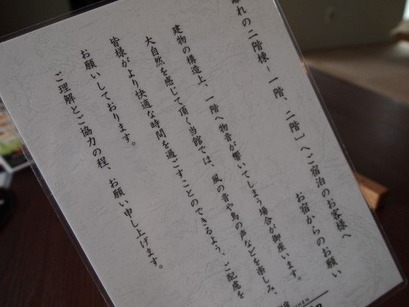 離れの二階棟、一階、二階〕へご宿泊のお客様へ
お宿からのお願い
建物の構造上、一階へ物音が響いてしまう場合が御座います。
大自然を感じて頂く当館では、風の音や鳥の声などを楽しみ、
皆様がより快適な時間を過ごすことのできるよう、ご配慮を
お願いしております。
ご理解とご協力の程、お願い申し上げます。